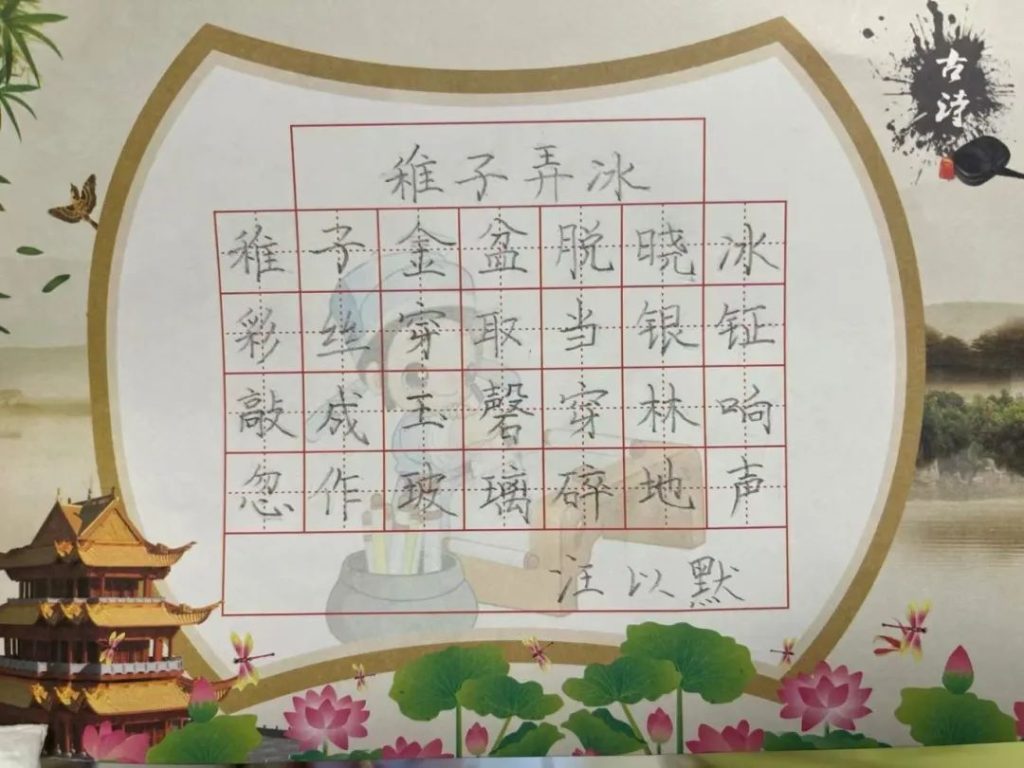 古诗
稚子弄冰
稚子金盆脱晓冰
彩丝穿取当银钲
敲成玉磬穿林响
忽作玻璃碎地声
汪以默